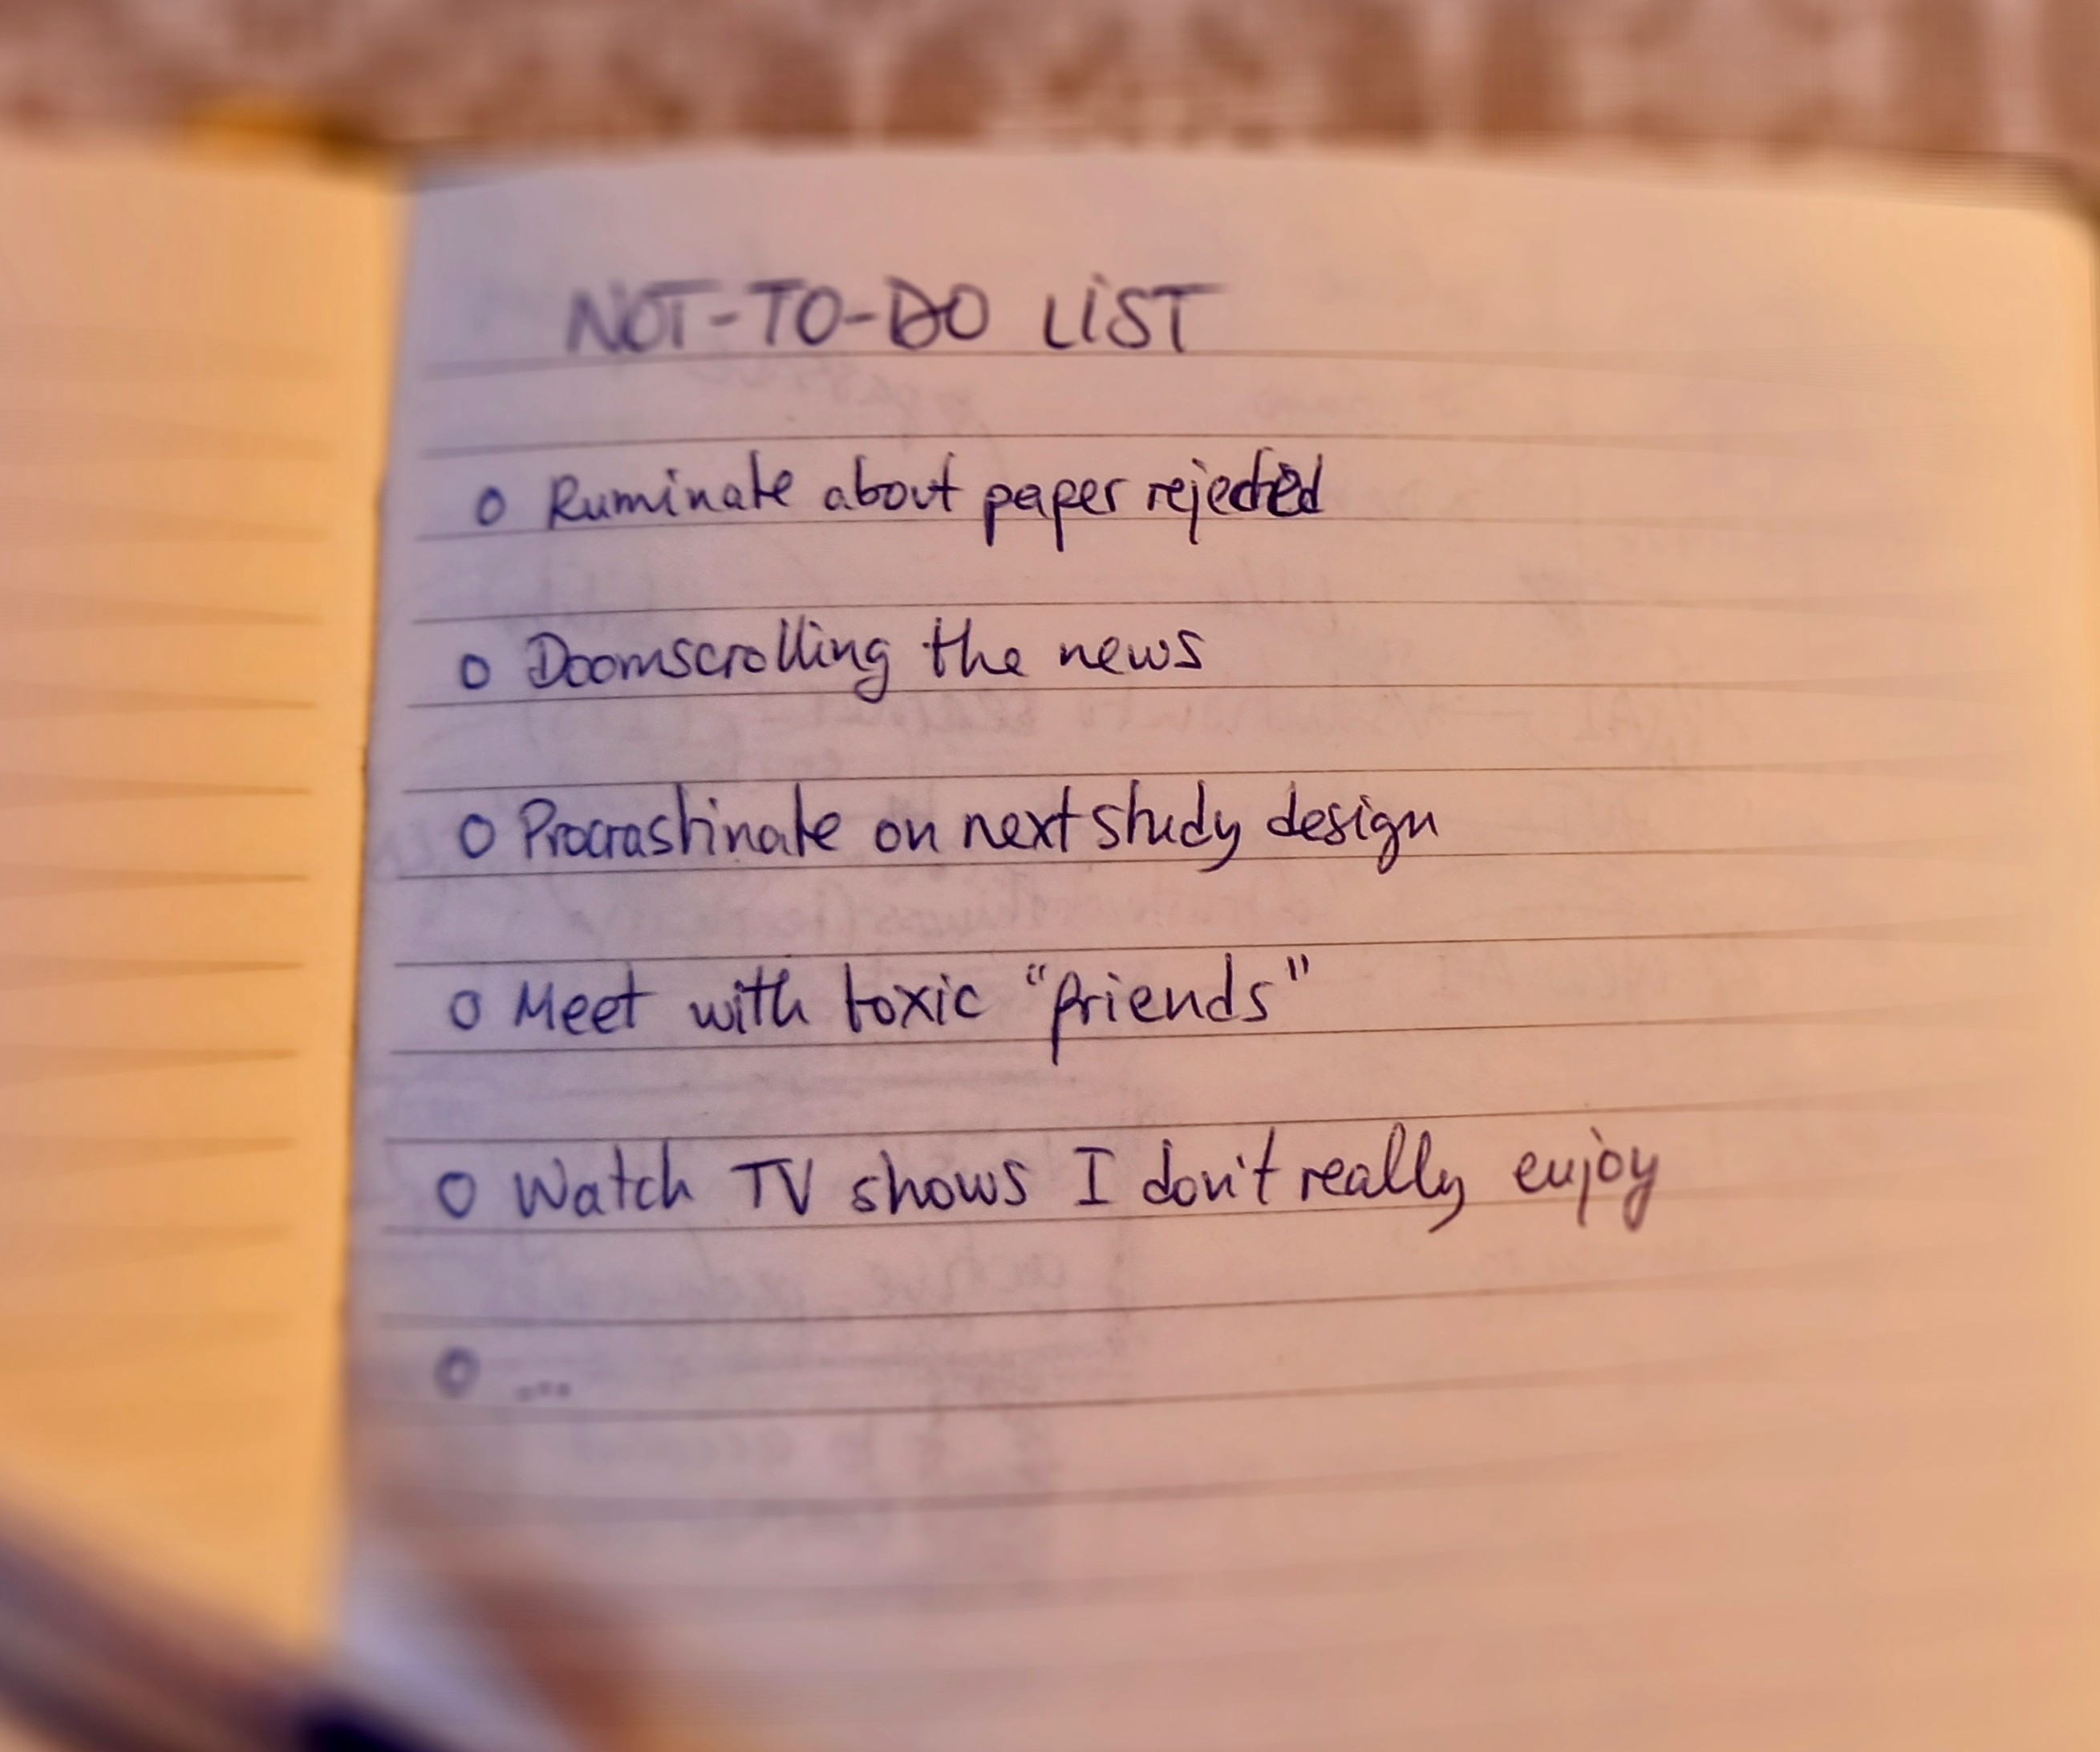 NOT-TO-DO LIST
o Ruminate about paper rejected
o Doomscrolling the news
o Procrastinate on next study design
o Meet with toxic "friends"
o Watch TV shows I don't really enjoy
o ...